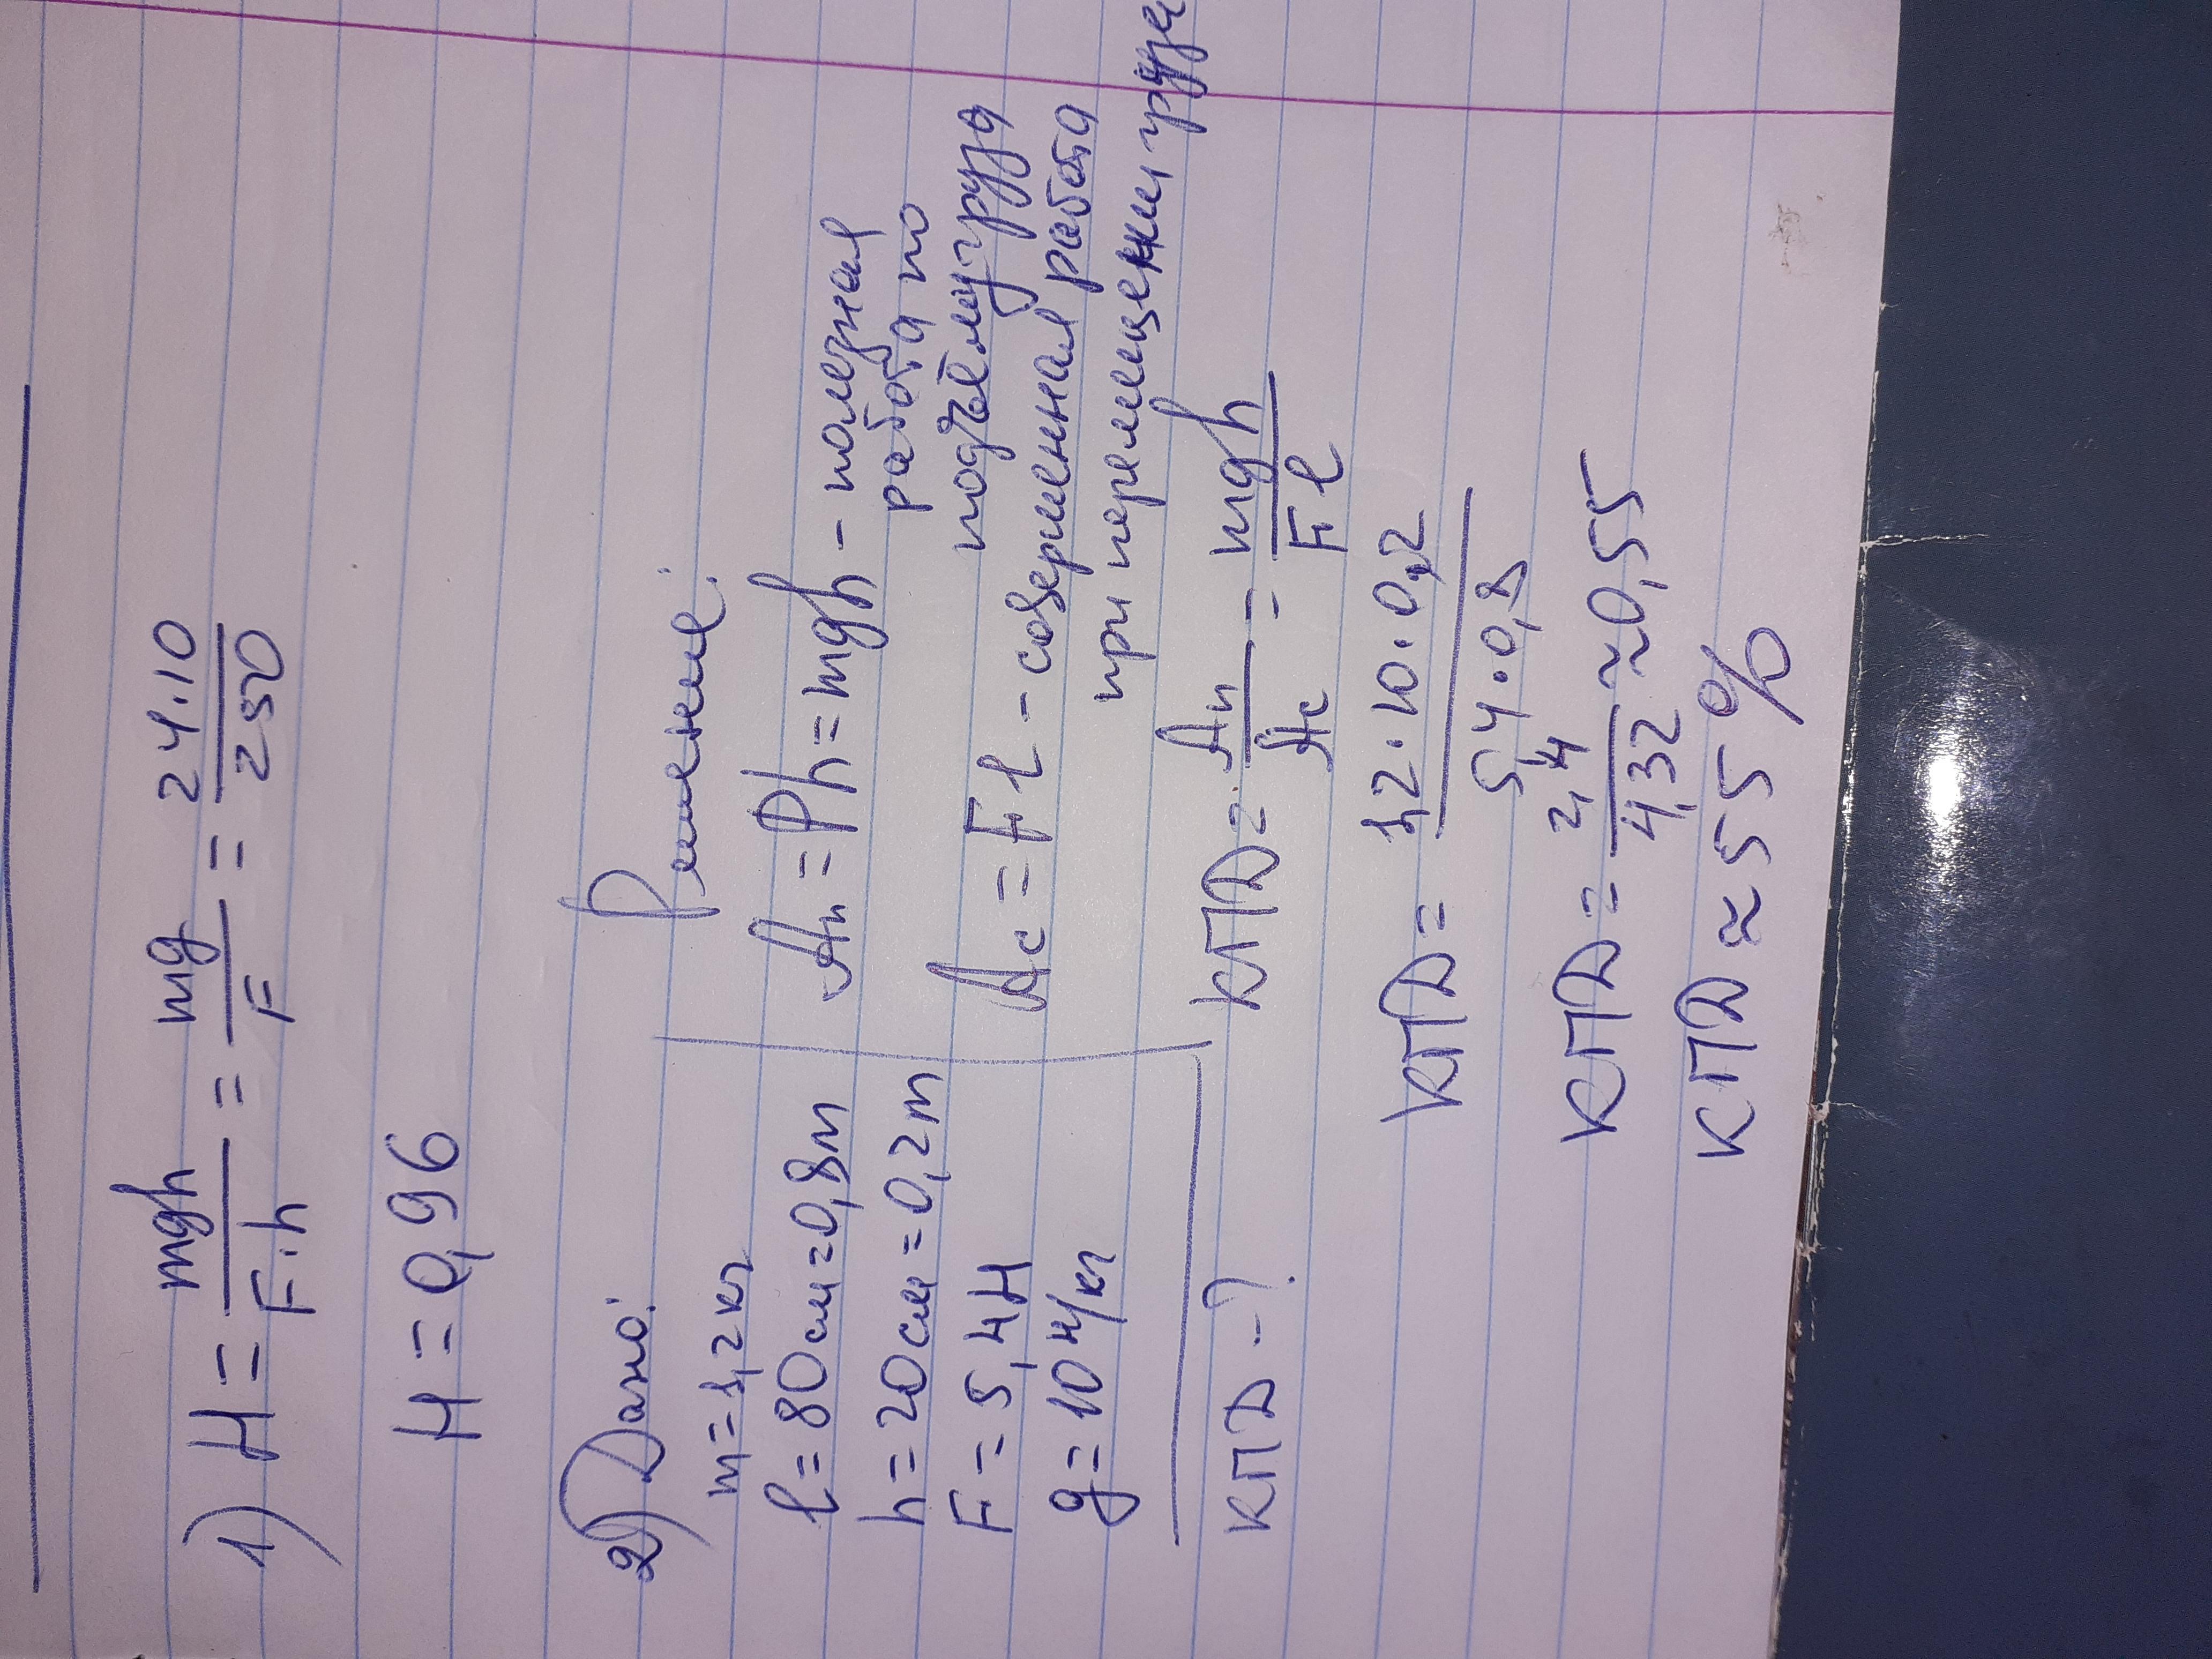 1) H = mgh / F·h = mg / F = 24·10 / 250
H = 0,96
2) Дано:
m = 1,2 кг
l = 80 см = 0,8 м
h = 20 см = 0,2 м
F = 5,4 Н
g = 10 Н/кг
КПД - ?
Решение:
Aп = Ph = mgh - полезная
работа по
подъёму груза
Ac = Fl - совершенная работа
при перемещении груза
КПД = Aп / Ac = mgh / Fl
КПД = 1,2·10·0,2 / 5,4·0,8
КПД = 2,4 / 4,32 ≈ 0,55
КПД ≈ 55 %